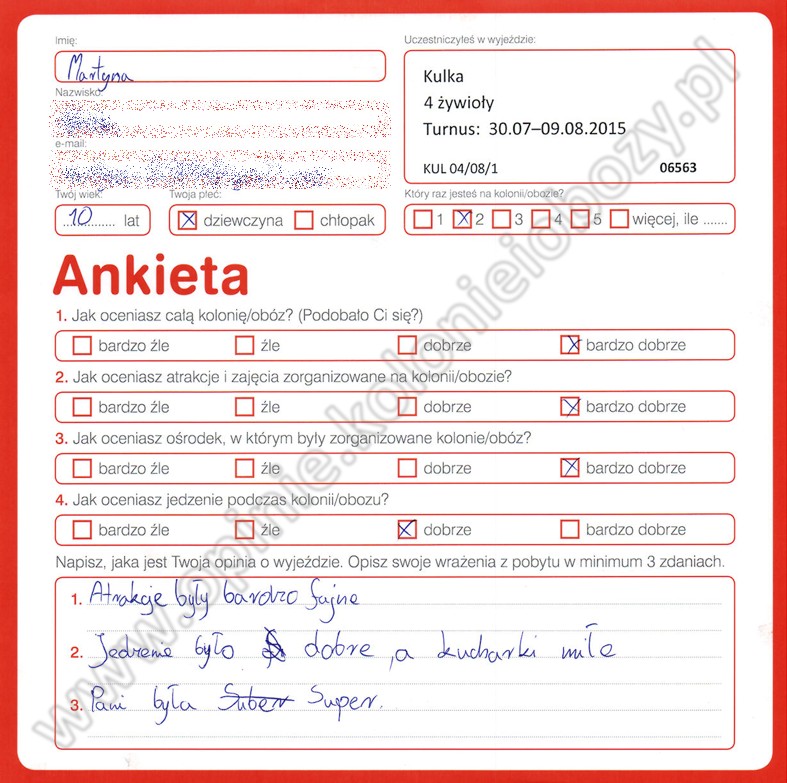 Imię:
Martyna
Nazwisko:
e-mail:
Twój wiek:
10 lat
Twoja płeć:
dziewczyna chłopak
Uczestniczyłeś w wyjeździe:
Kulka
4 żywioły
Turnus: 30.07–09.08.2015
KUL 04/08/1 06563
Który raz jesteś na kolonii/obozie?
1 2 3 4 5 więcej, ile .......
Ankieta
1. Jak oceniasz całą kolonię/obóz? (Podobało Ci się?)
bardzo źle źle dobrze bardzo dobrze
2. Jak oceniasz atrakcje i zajęcia zorganizowane na kolonii/obozie?
bardzo źle źle dobrze bardzo dobrze
3. Jak oceniasz ośrodek, w którym były zorganizowane kolonie/obóz?
bardzo źle źle dobrze bardzo dobrze
4. Jak oceniasz jedzenie podczas kolonii/obozu?
bardzo źle źle dobrze bardzo dobrze
Napisz, jaka jest Twoja opinia o wyjeździe. Opisz swoje wrażenia z pobytu w minimum 3 zdaniach.
1. Atrakcje były bardzo fajne
2. Jedzenie było dobre , a kucharki miłe
3. Pani była Super.
www.opinie.kolonieiobozy.pl